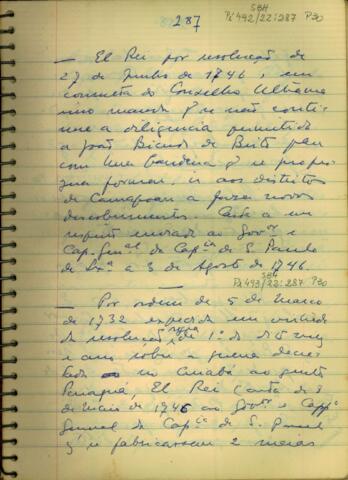 287
SBH
Pi 492/22:287 P30
— El Rei por resolução de
27 de Junho de 1746, em
consulta do Conselho Ultrama
rino manda q̃ se não conti-
nue a diligencia permittida
a João Bicudo de Brito para
com hua bandeira q̃ se propu
formar, ir aos districtos
de Camapoan a fazer novos
descobrimentos. Carta a
respeito enviada ao Govor e
Cap. Genal da Capcia de S. Paulo
de Lxa a 3 de Agosto de 1746.
SBH
Pi 493/22:287 P30
— Por ordem de 5 de Março
de 1732 expedida em
da resolução de 1º do do mez
e anno sobre a guerra decre
tada no Cuiabá ao gentio
Payaguá, El Rei (carta de 3
de Maio de 1746 ao Govor e Cappm
General da Capcia de S. Paulo)
q̃ se fabricassem 2 meias